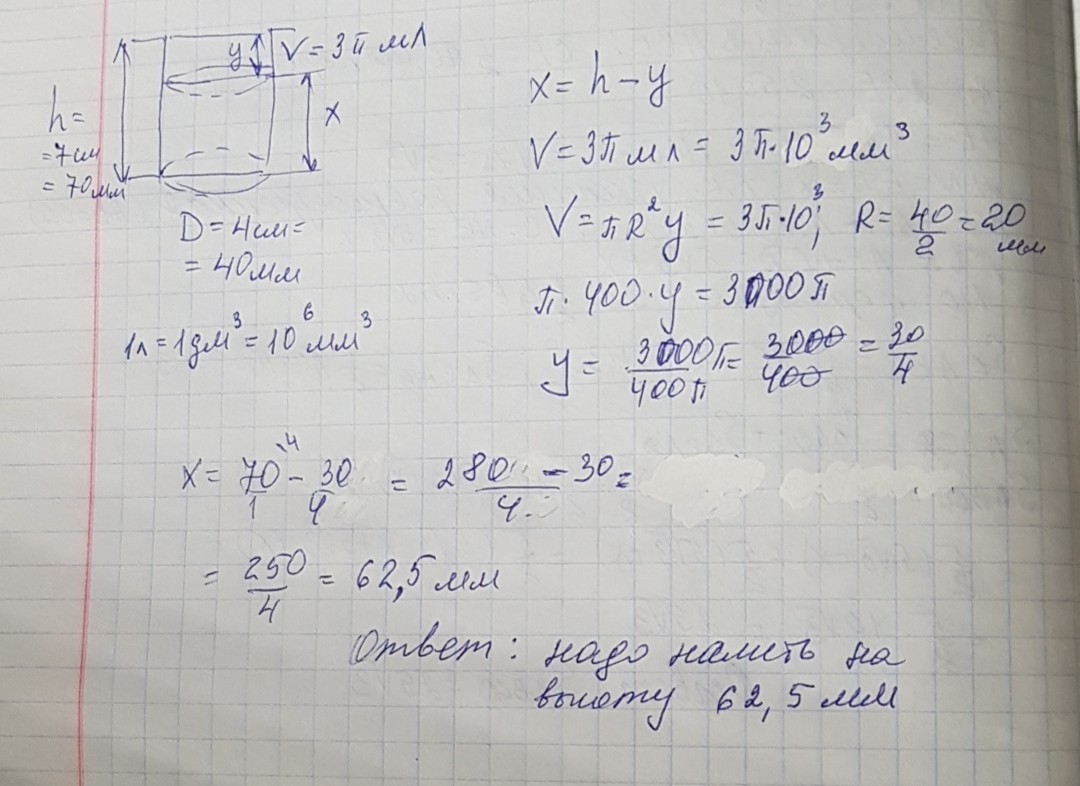 y V = 3π мл
h =
= 7 см
= 70 мм
x
D = 4 см =
= 40 мм
1л = 1дм³ = 10⁶ мм³
x = h - y
V = 3π мл = 3π·10³ мм³
V = πR²y = 3π·10³; R = 40/2 = 20 мм
π·400·y = 3000π
y = 3000π/400π = 3000/400 = 30/4
x = 70\4/1 - 30/4 = 280 - 30/4 =
= 250/4 = 62,5 мм
Ответ: надо налить на
высоту 62,5 мм